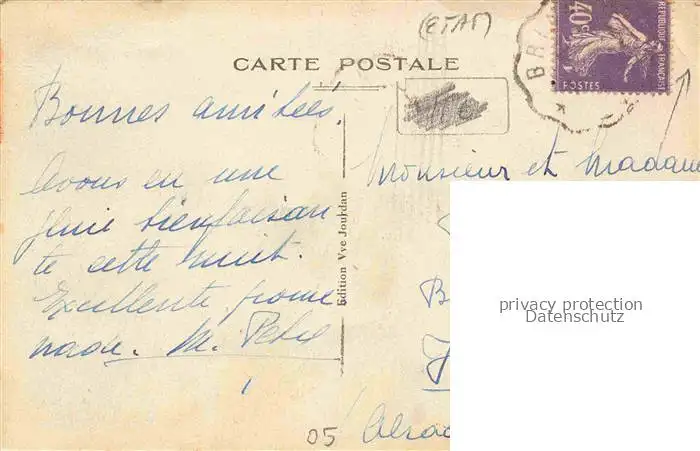 (ETAT)
CARTE POSTALE
BRI
40c
POSTES
REPUBLIQUE FRANÇAISE
Bonnes amitiés.
Avons eu une
pluie bienfaisan
te cette nuit.
Excellente prome
nade. M.
Edition Vve Jourdan
Monsieur et Madame
B
privacy protection
Datenschutz
05